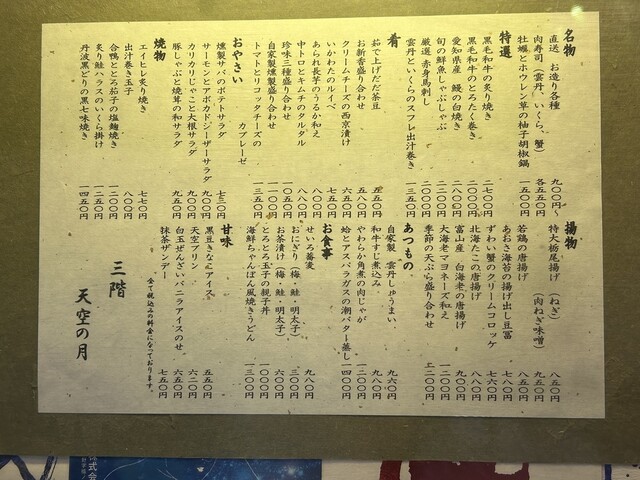 名物
直送 お造り各種 九〇〇円〜
肉寿司（雲丹、いくら、蟹） 各五五〇円
牡蠣とホウレン草の柚子胡椒鍋 一五〇〇円
特選
黒毛和牛の炙り焼き 二七〇〇円
黒毛和牛のとろたく巻き 一八〇〇円
愛知県産 鰻の白焼き 二八〇〇円
旬の鮮魚しゃぶしゃぶ 二二〇〇円
厳選 赤身馬刺し 二〇〇〇円
雲丹といくらのスフレ出汁巻き 一三五〇円
肴
茹で上げだだ茶豆 五五〇円
お新香盛り合わせ 五八〇円
クリームチーズの西京漬け 六五〇円
いかわたのルイベ 七五〇円
あられ長芋のうるか和え 八〇〇円
中トロとキムチのタルタル 八八〇円
珍味三種盛り合わせ 一〇五〇円
自家製燻製盛り合わせ 一一〇〇円
トマトとリコッタチーズの
カプレーゼ 一三五〇円
おやさい
燻製サバのポテトサラダ 七三〇円
サーモンとアボカドシーザーサラダ 九〇〇円
カリカリじゃこと大根サラダ 九〇〇円
豚しゃぶと焼茸の和サラダ 九五〇円
焼物
エイヒレ炙り焼き 七七〇円
出汁巻き玉子 八〇〇円
合鴨ととろ茄子の塩麹焼き 一二〇〇円
炙り鮭ハラスのいくら掛け 一二五〇円
丹波黒どりの黒七味焼き 一四五〇円
揚物
特大栃尾揚げ （ねぎ） 八五〇円
（肉ねぎ味噌） 九五〇円
若鶏の唐揚げ 八五〇円
あおさ海苔の揚げ出し豆冨 七八〇円
ずわい蟹のクリームコロッケ 七六〇円
北海たこの唐揚げ 九八〇円
富山産 白海老の唐揚げ 九〇〇円
大海老マヨネーズ和え 一二〇〇円
季節の天ぷら盛り合わせ 一二〇〇円
あつもの
自家製 雲丹しゅうまい 九六〇円
和牛すじ煮込み 九八〇円
やわらか角煮の肉じゃが 一二〇〇円
蛤とアスパラガスの潮バター蒸し 一四〇〇円
お食事
せいろ蕎麦 九八〇円
おにぎり（梅・鮭・明太子） 三〇〇円
お茶漬け（梅・鮭・明太子） 六〇〇円
とろとろ玉子の親子丼 一一〇〇円
海鮮ちゃんぽん風焼きうどん 一三〇〇円
甘味
黒豆きなこアイス 五五〇円
天空プリン 六二〇円
白玉ぜんざいバニラアイスのせ 六五〇円
抹茶サンデー 七五〇円
全て税込みの料金になっております。
三階
天空の月
株式会